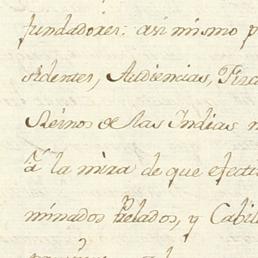 fundadores: asi mismo p
sidentes, Audiencias, Fisca
Reinos de las Indias
á la mira de que efecti
minados Prelados, y Cabil